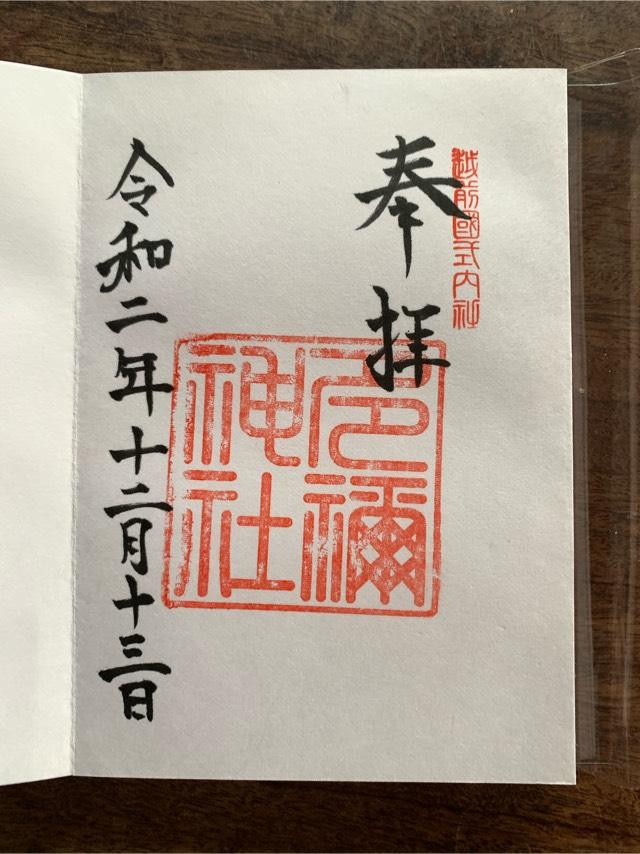 越前國式内社
奉拝
色禰
神社
令和二年十二月十三日